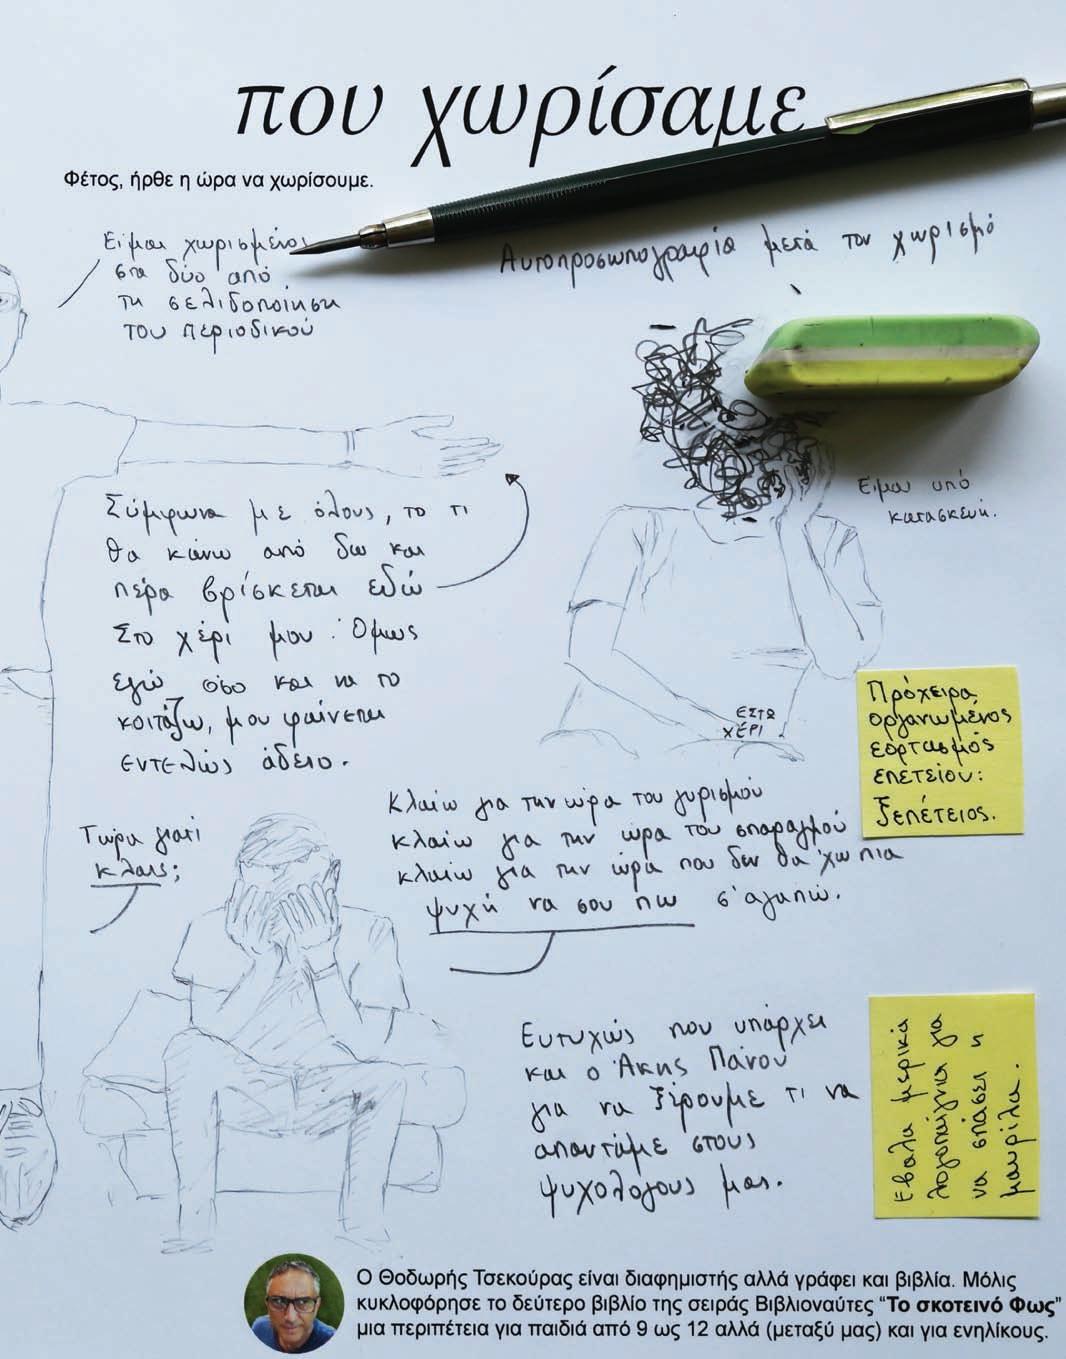 που χωρίσαμε
Φέτος, ήρθε η ώρα να χωρίσουμε.
Είμαι χωρισμένος
στα δύο από
τη σελιδοποίηση
του περιοδικού
Αυτοπροσωπογραφία μετά τον χωρισμό
Είμαι υπό
κατασκευή.
Σύμφωνα με όλους, το τι
θα κάνω από δω και
πέρα βρίσκεται εδώ
Στο χέρι μου. Όμως
εγώ όσο και να το
κοιτάζω, μου φαίνεται
εντελώς άδειο.
ΕΣΤΩ
ΧΕΡΙ
Πρόχειρα
οργανωμένος
εορτασμός
επετείου:
Ξεπέτειος.
Τώρα γιατί
κλαις;
Κλαίω για την ώρα του γυρισμού
κλαίω για την ώρα του σπαραγμού
κλαίω για την ώρα που δεν θα 'χω πια
ψυχή να σου πω σ'αγαπώ.
Ευτυχώς που υπάρχει
και ο Άκης Πάνου
για να ξέρουμε τι να
απαντάμε στους
ψυχολόγους μας.
Έβαλα μερικά
λογοπαίγνια για
να σπάσει η
μαυρίλα.
Ο Θοδωρής Τσεκούρας είναι διαφημιστής αλλά γράφει και βιβλία. Μόλις
κυκλοφόρησε το δεύτερο βιβλίο της σειράς Βιβλιοναύτες “Το σκοτεινό Φως”
μια περιπέτεια για παιδιά από 9 ως 12 αλλά (μεταξύ μας) και για ενηλίκους.